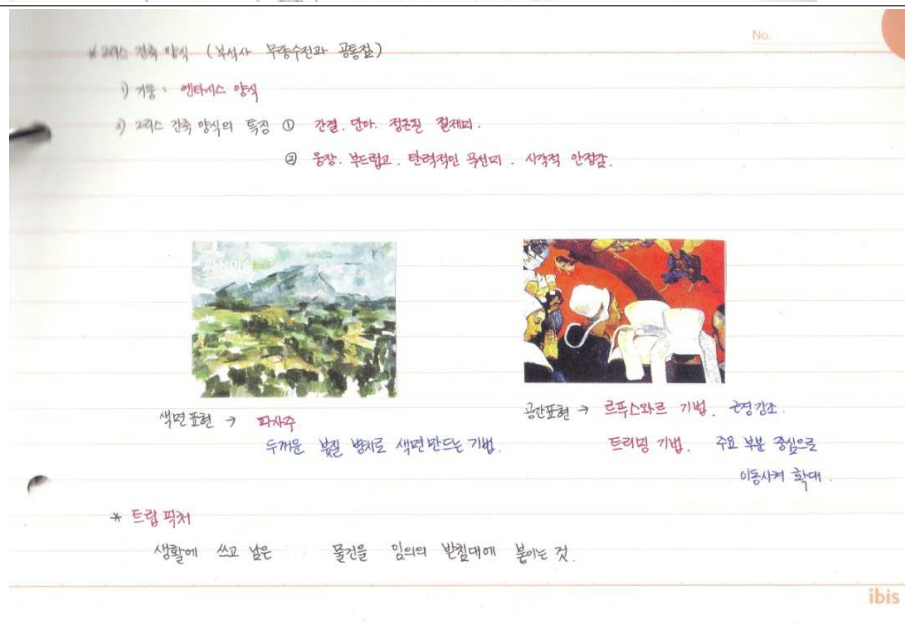 No.
* 그리스 건축 양식 (부석사 무량수전과 공통점)
1) 기둥 : 엔타시스 양식
2) 그리스 건축 양식의 특징 ① 간결. 단아. 정돈된 절제미.
② 웅장. 부드럽고. 탄력적인 곡선미. 시각적 안정감.
색면표현 → 파사주
두꺼운 붓질 병치로 색면만드는 기법.
공간표현 → 르푸스와르 기법. 근경강조.
트리밍 기법. 주요 부분 중심으로
이동시켜 확대.
* 트랩 픽처
생활에 쓰고 남은 물건을 임의의 받침대에 붙이는 것.
ibis